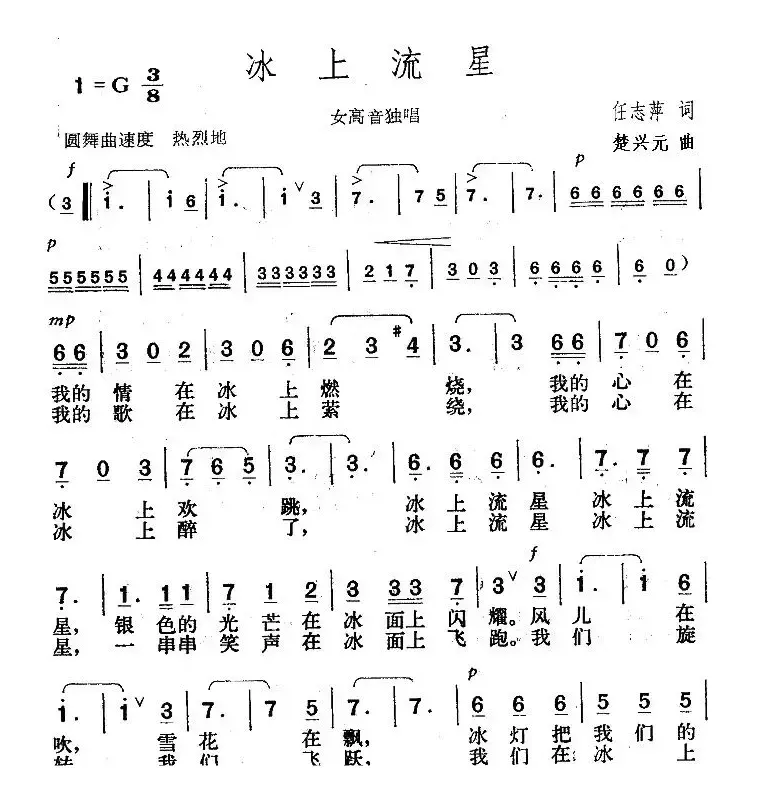 冰上流星
1=G 3/8
女高音独唱
任志萍 词
圆舞曲速度 热烈地
楚兴元 曲
f p
(3 i. i i 6 i. i ∨ 3 7. 7 5 7. 7. 666666
p
555555 444444 333333 2 1 7 3 0 3 6 6 6 6 6 0)
mp
6 6 3 0 2 3 0 6 2 3 #4 3. 3 6 6 7 0 6
我的 情 在 冰 上 燃 烧, 我的 心 在
我的 歌 在 冰 上 萦 绕, 我的 心 在
7 0 3 7 6 5 3. 3. 6. 6 6 6 6. 7. 7 7
冰 上 欢 跳, 冰 上 流 星 冰 上 流
冰 上 醉 了, 冰 上 流 星 冰 上 流
f
7. 1. 1 1 7 1 2 3 3 3 7 3 ∨ 3 i. i 6
星, 银 色的 光 芒 在 冰 面上 闪 耀。风 儿 在
星, 一 串串 笑 声 在 冰 面上 飞 跑。我 们 旋
p
i. i ∨ 3 7. 7 5 7. 7 6 6 6 5 5 5
吹, 雪 花 在 飘, 冰 灯 把 我 们 的
转, 我 们 飞 跃, 我 们 在 冰 上